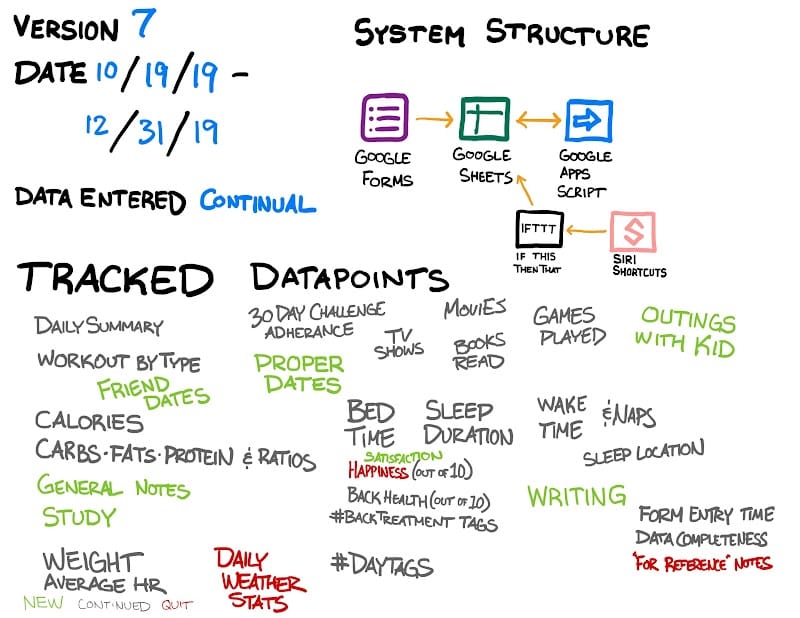 VERSION 7
DATE 10/19/19 -
12/31/19
DATA ENTERED CONTINUAL
SYSTEM STRUCTURE
GOOGLE
FORMS
GOOGLE
SHEETS
GOOGLE
APPS
SCRIPT
IFTTT
IF THIS
THEN THAT
SIRI
SHORTCUTS
TRACKED DATAPOINTS
DAILY SUMMARY
30 DAY CHALLENGE
ADHERANCE
TV
SHOWS
MOVIES
BOOKS
READ
GAMES
PLAYED
OUTINGS
WITH KID
WORKOUT BY TYPE
FRIEND
DATES
PROPER
DATES
CALORIES
CARBS·FATS·PROTEIN & RATIOS
GENERAL NOTES
STUDY
BED
TIME
SLEEP
DURATION
WAKE
TIME
& NAPS
SLEEP LOCATION
SATISFACTION
HAPPINESS (OUT OF 10)
BACK HEALTH (OUT OF 10)
#BACKTREATMENT TAGS
WRITING
FORM ENTRY TIME
DATA COMPLETENESS
"FOR REFERENCE" NOTES
WEIGHT
AVERAGE HR
DAILY
WEATHER
STATS
#DAYTAGS
NEW CONTINUED QUIT